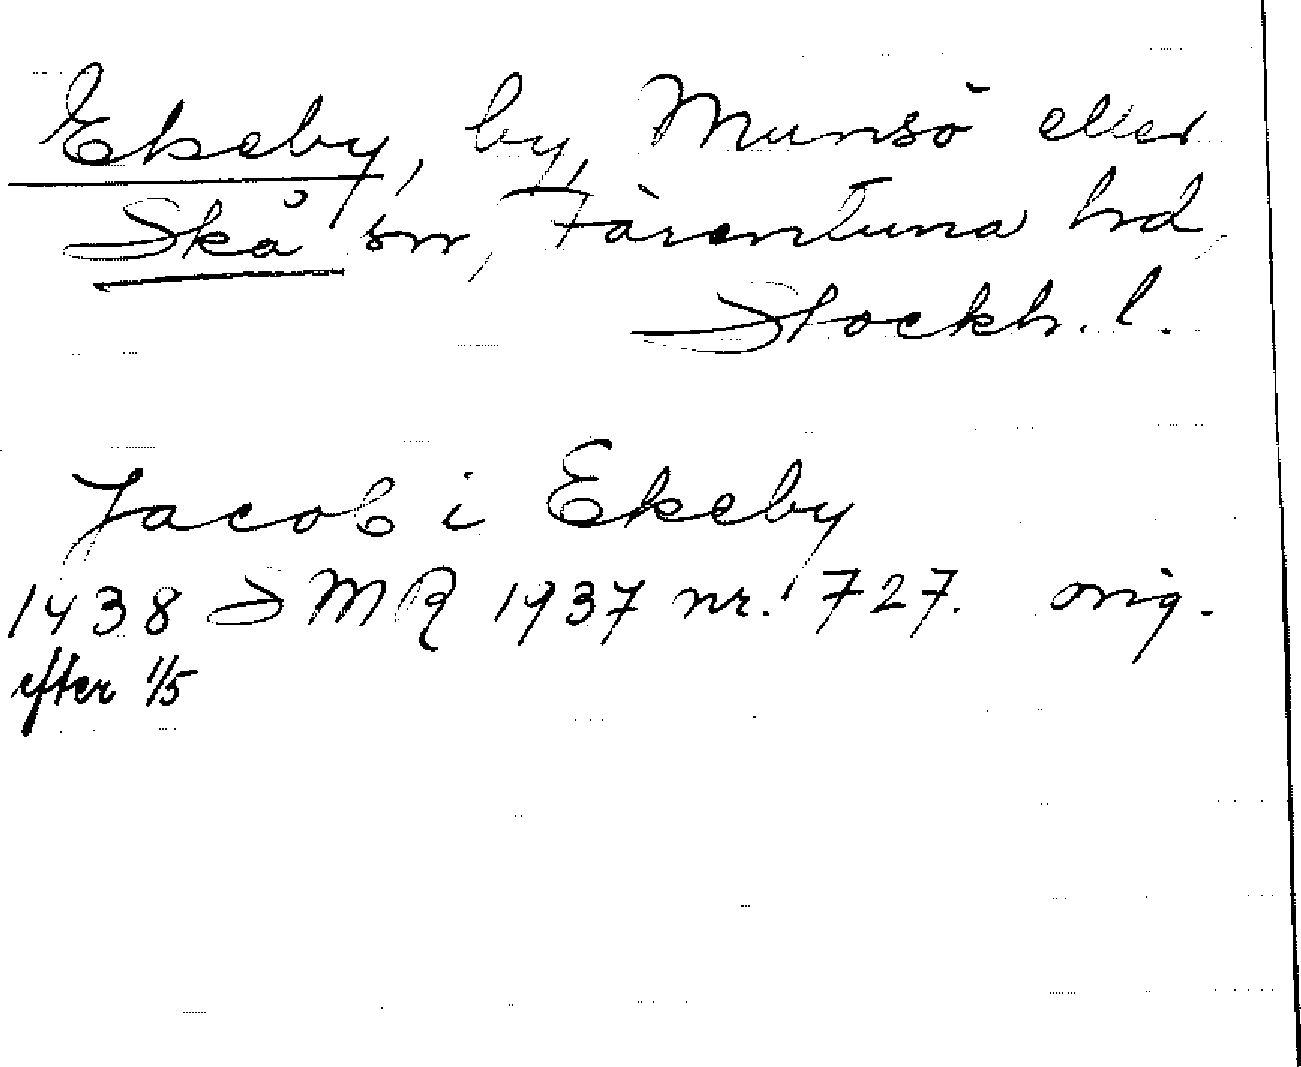 Ekeby, by, Munsö eller
Skå sn, Färentuna hd,
Stockh. l.
Jacob i Ekeby
1438 SMR 1937 nr. 727. orig.
efter 1/5